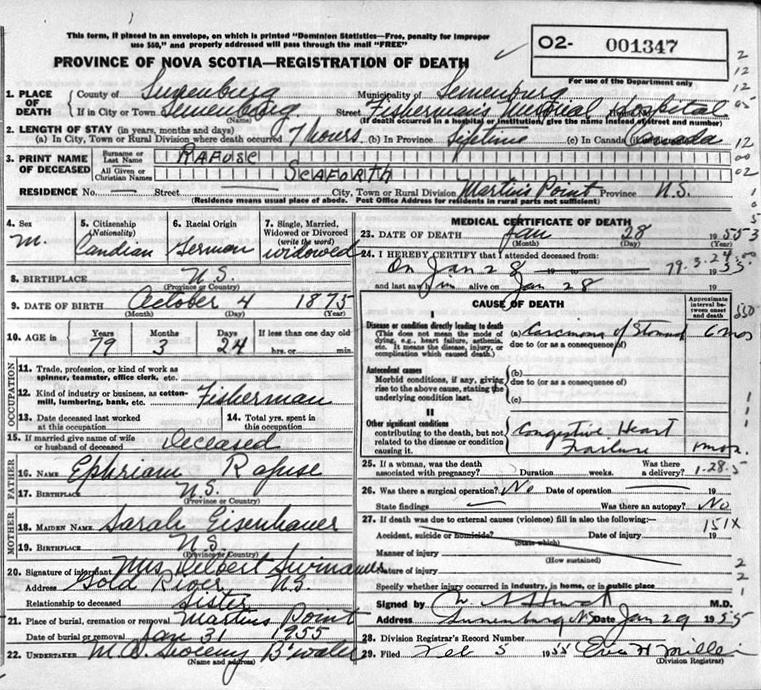 This form, if placed in an envelope, on which is printed "Dominion Statistics—Free, penalty for improper
use $50," and properly addressed will pass through the mail "FREE"
PROVINCE OF NOVA SCOTIA—REGISTRATION OF DEATH
O2- 001347
For use of the Department only
1. PLACE OF DEATH
County of Lunenburg Municipality of Lunenburg
If in City or Town Lunenburg Street Fisherman's Memorial Hospital
(Name) (If death occurred in a hospital or institution, give the name instead of street and number)
2. LENGTH OF STAY (in years, months and days)
(a) In City, Town or Rural Division where death occurred 7 hours (b) In Province Lifetime (c) In Canada Canada
3. PRINT NAME OF DECEASED
Surname or Last Name RAFUSE
All Given or Christian Names SEAFORTH
RESIDENCE No. — Street — City, Town or Rural Division Martin's Point Province N.S.
(Residence means usual place of abode. Post Office Address for residents in rural parts not sufficient)
4. Sex M.
5. Citizenship (Nationality) Candian
6. Racial Origin German
7. Single, Married, Widowed or Divorced (write the word) widowed
8. BIRTHPLACE N.S.
(Province or Country)
9. DATE OF BIRTH October 4 1875
(Month) (Day) (Year)
10. AGE in Years 79 Months 3 Days 24 If less than one day old
hrs. or min.
OCCUPATION
11. Trade, profession, or kind of work as
spinner, teamster, office clerk, etc.
12. Kind of industry or business, as cotton-
mill, lumbering, bank, etc. Fisherman
13. Date deceased last worked
at this occupation
14. Total yrs. spent in
this occupation
15. If married give name of wife
or husband of deceased Deceased
FATHER
16. NAME Ephriam Rafuse
17. BIRTHPLACE N.S.
(Province or Country)
MOTHER
18. MAIDEN NAME Sarah Eisenhauer
19. BIRTHPLACE N.S.
(Province or Country)
20. Signature of informant Mrs Delbert
Address Gold River, N.S.
Relationship to deceased Sister
21. Place of burial, cremation or removal Martins Point
Date of burial or removal Jan 31 1955
22. UNDERTAKER B'water
(Name and address)
MEDICAL CERTIFICATE OF DEATH
23. DATE OF DEATH Jan 28 1955
(Month) (Day) (Year)
24. I HEREBY CERTIFY that I attended deceased from:
On Jan 28 to 1955
79.3.24
and last saw him alive on Jan 28
CAUSE OF DEATH
Approximate interval between onset and death
I
Disease or condition directly leading to death
(This does not mean the mode of
dying, e.g., heart failure, asthenia,
etc. It means the disease, injury, or
complication which caused death.)
(a) Carcinoma of Stomach 6 mos
due to (or as a consequence of)
Antecedent causes
Morbid conditions, if any, giving
rise to the above cause, stating the
underlying condition last.
(b)
due to (or as a consequence of)
(c)
II
Other significant conditions
contributing to the death, but not
related to the disease or condition
causing it.
Congestive Heart
Failure 1 mos.
25. If a woman, was the death
associated with pregnancy? Duration weeks. Was there
a delivery? 1-28-5
26. Was there a surgical operation? No Date of operation — 19
State findings — Was there an autopsy? No
27. If death was due to external causes (violence) fill in also the following:—
151X
Accident, suicide or homicide? Date of injury 19
(State which)
Manner of injury
(How sustained)
Nature of injury
Specify whether injury occurred in industry, in home, or in public place
Signed by M.D.
Address Lunenburg NS Date Jan 29 1955
28. Division Registrar's Record Number
29. Filed Feb 5 1955
(Division Registrar)